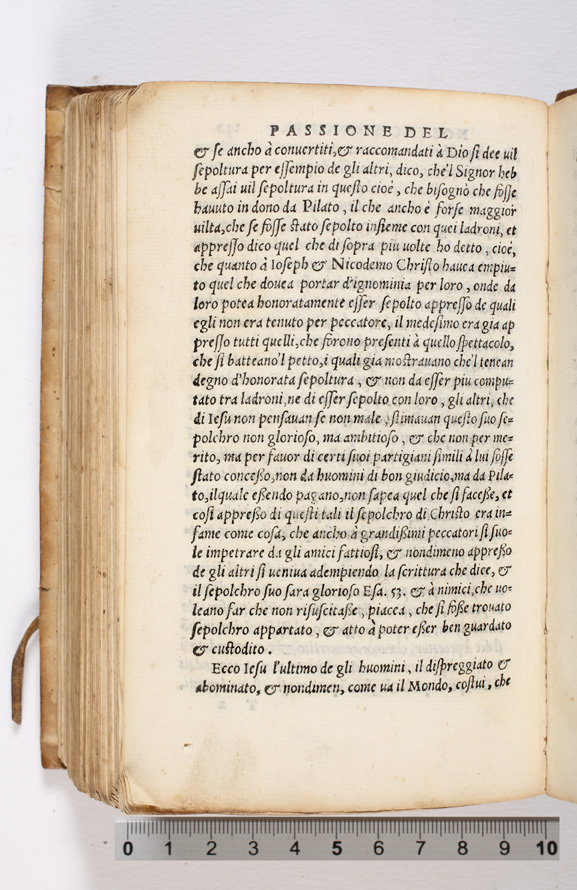 PASSIONE DEL
& se ancho à conuertiti, & raccomandati à Dio si dee uil
sepoltura per essempio de gli altri, dico, che'l Signor heb
be assai uil sepoltura in questo cioè, che bisognò che fosse
hauuto in dono da Pilato, il che ancho è forse maggior
uiltà, che se fosse stato sepolto insieme con quei ladroni, et
appresso dico quel che di sopra piu uolte ho detto, cioè,
che quanto à Ioseph & Nicodemo Christo hauea empiu-
to quel che douea portar d'ignominia per loro, onde da
loro potea honoratamente esser sepolto appresso de quali
egli non era tenuto per peccatore, il medesimo era gia ap
presso tutti quelli, che forono presenti à quello spettacolo,
che si batteano'l petto, i quali gia mostrauano che'l tenean
degno d'honorata sepoltura, & non da esser piu compu-
tato tra ladroni, ne di esser sepolto con loro, gli altri, che
di Iesu non pensauan se non male, stimauan questo suo se-
polchro non glorioso, ma ambitioso, & che non per me-
rito, ma per fauor di certi suoi partigiani simili à lui fosse
stato concesso, non da huomini di bon giudicio, ma da Pila-
to, ilquale essendo pagano, non sapea quel che si facesse, et
cosi appresso di questi tali il sepolchro di Christo era in-
fame come cosa, che ancho à grandissimi peccatori si suo-
le impetrare da gli amici fattiosi, & nondimeno appresso
de gli altri si ueniua adempiendo la scrittura che dice, &
il sepolchro suo sara glorioso Esa. 53. & à nimici, che uo-
leano far che non risuscitasse, piacea, che si fosse trouato
sepolchro appartato, & atto à poter esser ben guardato
& custodito.
Ecco Iesu l'ultimo de gli huomini, il dispreggiato &
abominato, & nondimen, come ua il Mondo, costui, che
0 1 2 3 4 5 6 7 8 9 10